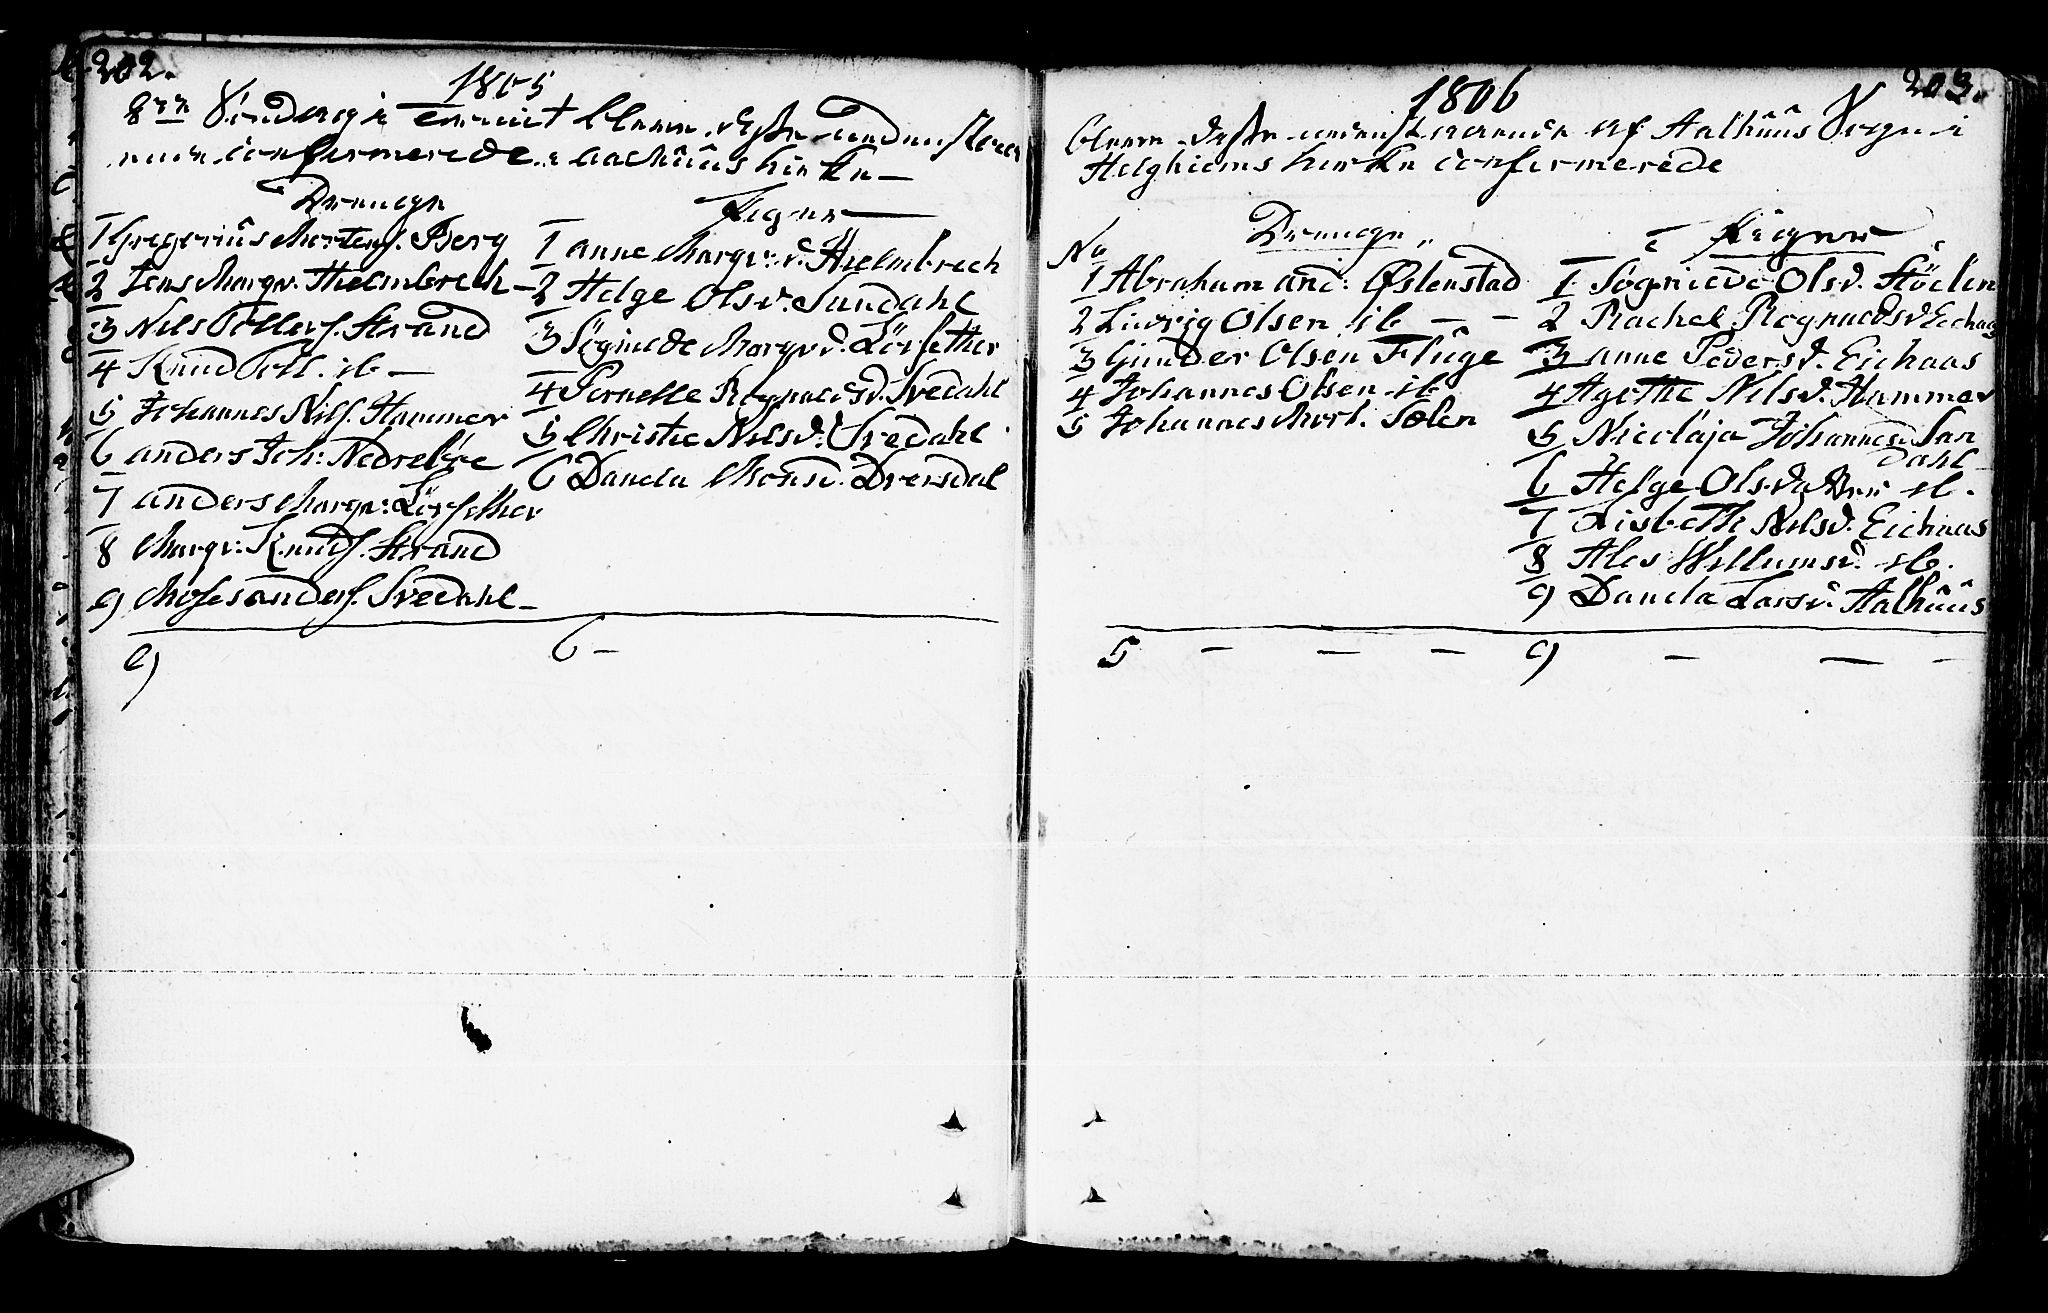 202.
1805
8de Søndag i Trinit bleve disse underskrev
ne confirmerede i Aalhuus Kirke
Drenge
1 Gregorius Mortens. Berg
2 Jens Margv. Hielmbrech
3 Nils Tollefs. Strand
4 Knud Toll. ib
5 Johannes Nils. Hammer
6 Anders Joh: Nedrebøe
7 Anders Margv: Lörsether
8 Margv: Knuds. Strand
9 Moses Anders. Svedahl
9
Piger
1 Anne Margv: d. Hielmbrech
2 Helge Olsd. Sandahl
3 Sögniede Margv d. Lörsether
4 Pernelle Rognaldsd. Svedahl
5 Christie Nilsd. Svedahl
6 Danela Monsd. Dversdal
6
203.
1806
bleve disse af Aalhuus Sogn i
Helghiems Kirke confirmerede
Drenge
No
1 Abraham And: Østenstad
2 Ludvig Olsen ib
3 Gunder Olsen Fluge
4 Johannes Olsen ib
5 Johannes Mort. Sølen
5
Piger
1 Sogniede Olsd. Stöelen
2 Rachel Rognaldsd Eichaas
3 Anne Pedersd. Eichaas
4 Agethe Nilsd. Hammer
5 Nicolaja Johannesd. San
dahl
6 Helge Olsd. ib.
7 Lisbeth Nilsd. Eichaas
8 Ales Willumsd. ib.
9 Danela Larsd. Aalhuus
9